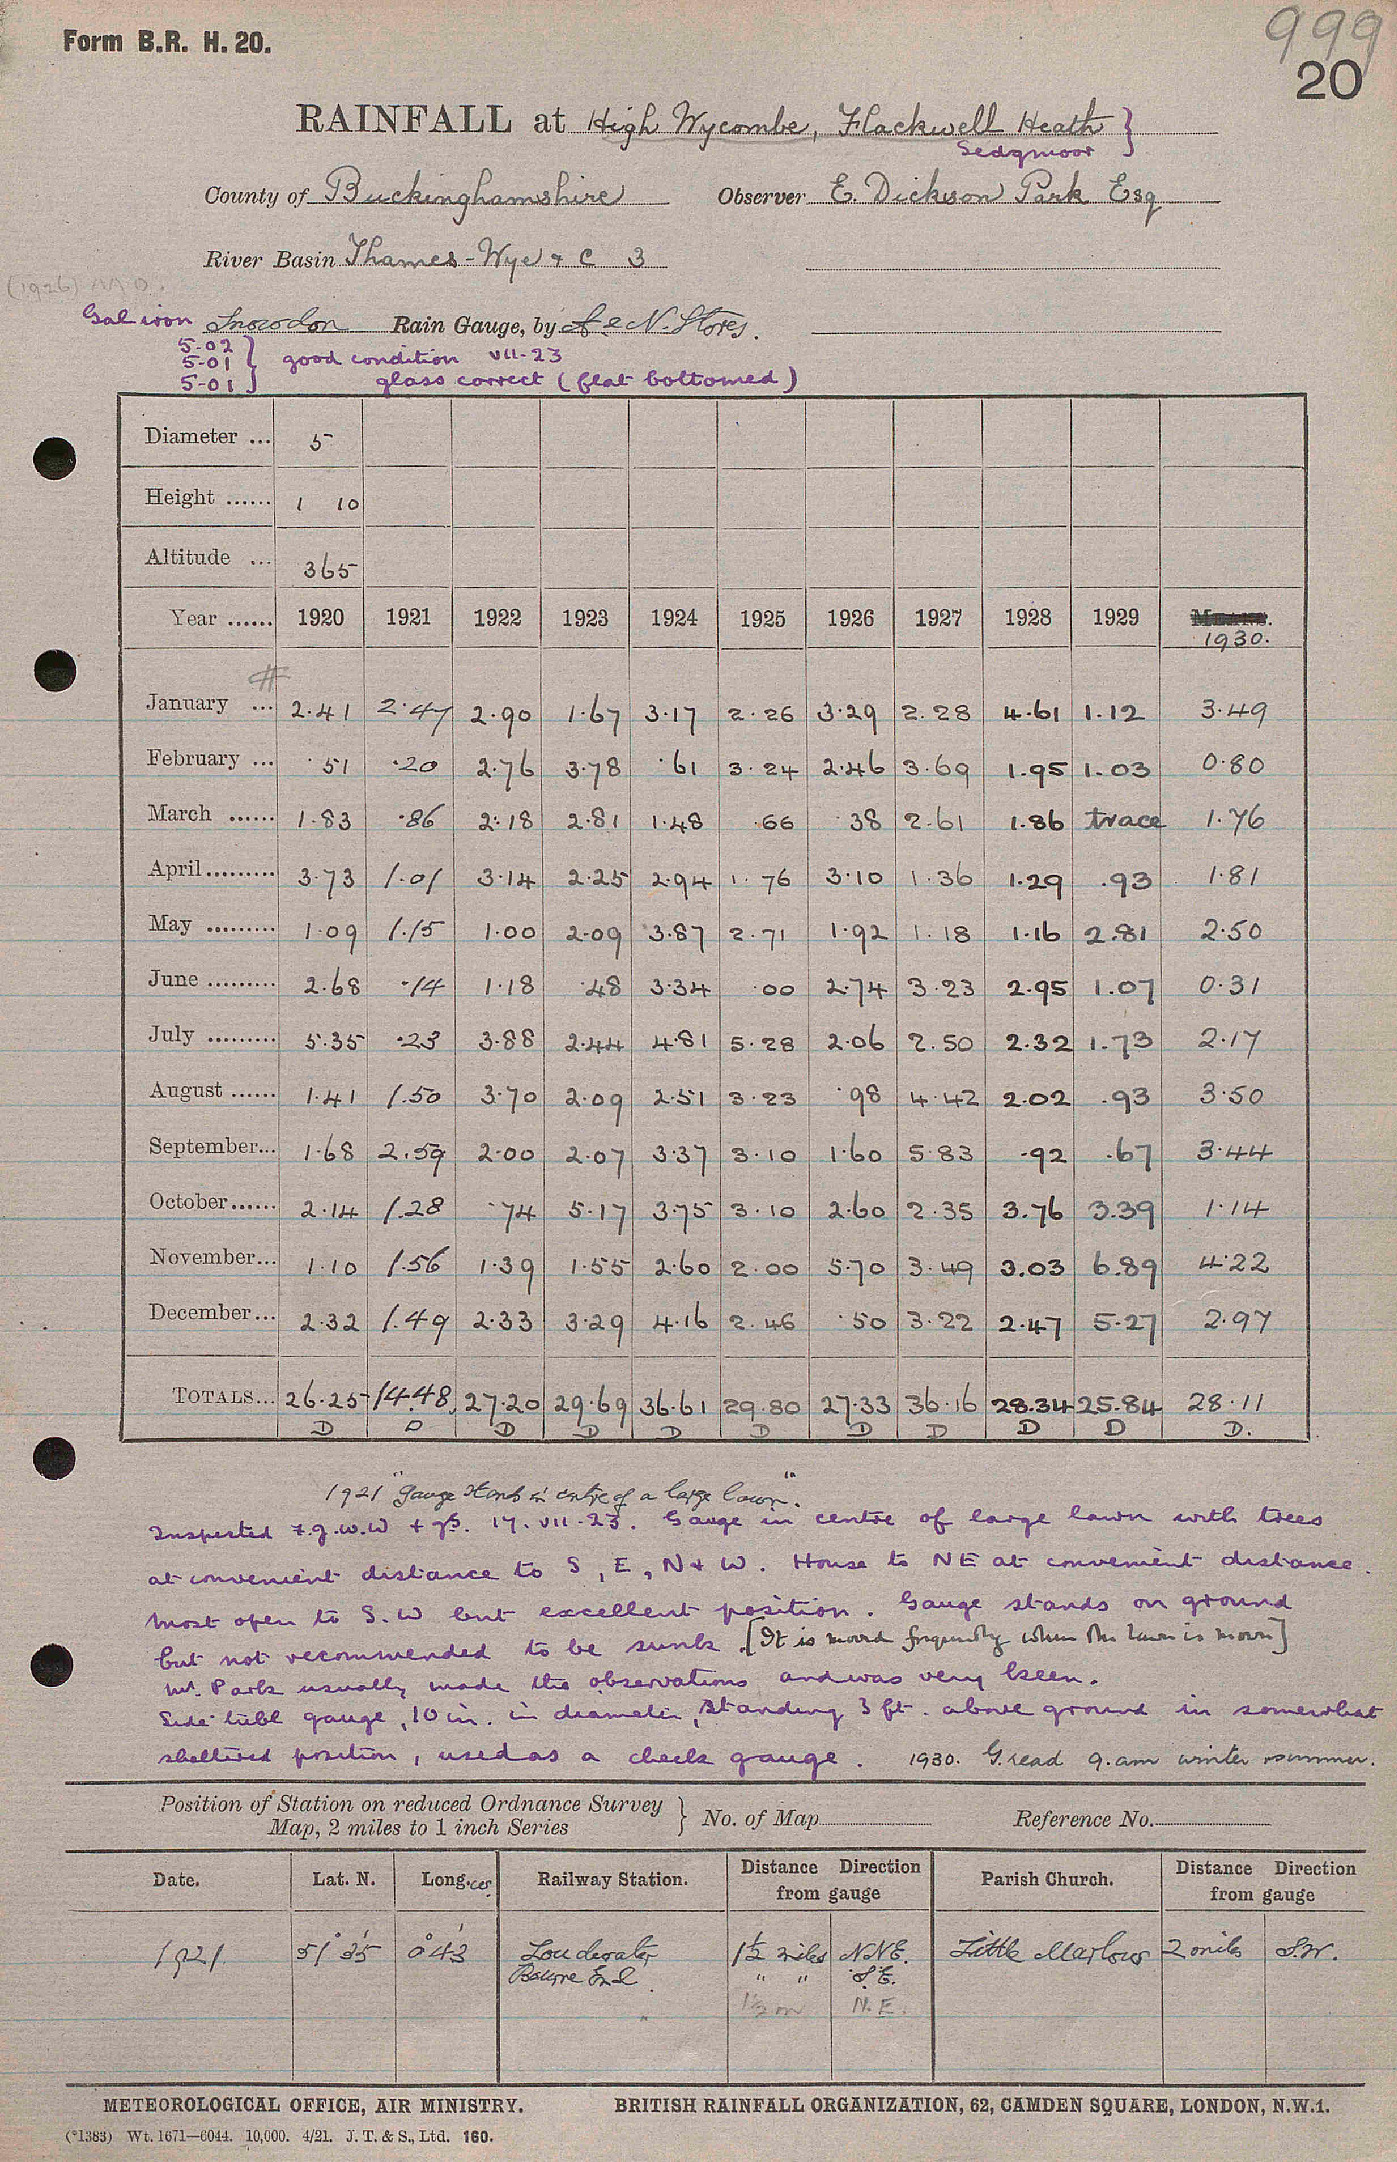 Form B.R. H. 20.
999
20
RAINFALL at High Wycombe, Flackwell Heath }
Sedgmoor
County of Buckinghamshire Observer E. Dickson Park Esq
River Basin Thames - Wye & C 3
(1926)
Gal iron Snowdon Rain Gauge, by A & N. Stores.
5-02
5-01 } good condition VII-23
5-01 glass correct (flat bottomed)
Diameter ... 5
Height ...... 1 10
Altitude ... 365
Year ...... 1920 1921 1922 1923 1924 1925 1926 1927 1928 1929 1930.
January ... 2.41 2.47 2.90 1.67 3.17 2.26 3.29 2.28 4.61 1.12 3.49
February ... .51 .20 2.76 3.78 .61 3.24 2.46 3.69 1.95 1.03 0.80
March ...... 1.83 .86 2.18 2.81 1.48 .66 .38 2.61 1.86 trace 1.76
April ......... 3.73 1.01 3.14 2.25 2.94 1.76 3.10 1.36 1.29 .93 1.81
May ......... 1.09 1.15 1.00 2.09 3.87 2.71 1.92 1.18 1.16 2.81 2.50
June ......... 2.68 .14 1.18 .48 3.34 .00 2.74 3.23 2.95 1.07 0.31
July ......... 5.35 .23 3.88 2.44 4.81 5.28 2.06 2.50 2.32 1.73 2.17
August ...... 1.41 1.50 3.70 2.09 2.51 3.23 .98 4.42 2.02 .93 3.50
September... 1.68 2.59 2.00 2.07 3.37 3.10 1.60 5.83 .92 .67 3.44
October ...... 2.14 1.28 .74 5.17 3.75 3.10 2.60 2.35 3.76 3.39 1.14
November... 1.10 1.56 1.39 1.55 2.60 2.00 5.70 3.49 3.03 6.89 4.22
December... 2.32 1.49 2.33 3.29 4.16 2.46 .50 3.22 2.47 5.27 2.97
TOTALS... 26.25 14.48 27.20 29.69 36.61 29.80 27.33 36.16 28.34 25.84 28.11
D D D D D D D D D D D.
1921 "Gauge stands in centre of a large lawn".
Inspected F.J.W.W + 17.VII-23. Gauge in centre of large lawn with trees
at convenient distance to S, E, N & W. House to NE at convenient distance.
Most open to S.W but excellent position. Gauge stands on ground
but not recommended to be sunk. [It is moved frequently when the lawn is mown]
Mr. Park usually made the observations and was very keen.
Side tube gauge, 10 in. in diameter, standing 3 ft. above ground in somewhat
sheltered position, used as a check gauge. 1930. G. read 9. am winter & summer.
Position of Station on reduced Ordnance Survey
Map, 2 miles to 1 inch Series } No. of Map Reference No.
Date. Lat. N. Long. W. Railway Station. Distance Direction from gauge Parish Church. Distance Direction from gauge
1921. 51° 35' 0° 43' Loudwater 1½ miles NNE. Little Marlow 2 miles S.W.
Bourne End " " S.E.
1½ m N.E.
METEOROLOGICAL OFFICE, AIR MINISTRY. BRITISH RAINFALL ORGANIZATION, 62, CAMDEN SQUARE, LONDON, N.W.1.
(*1383) Wt. 1671—6044. 10,000. 4/21. J. T. & S., Ltd. 160.